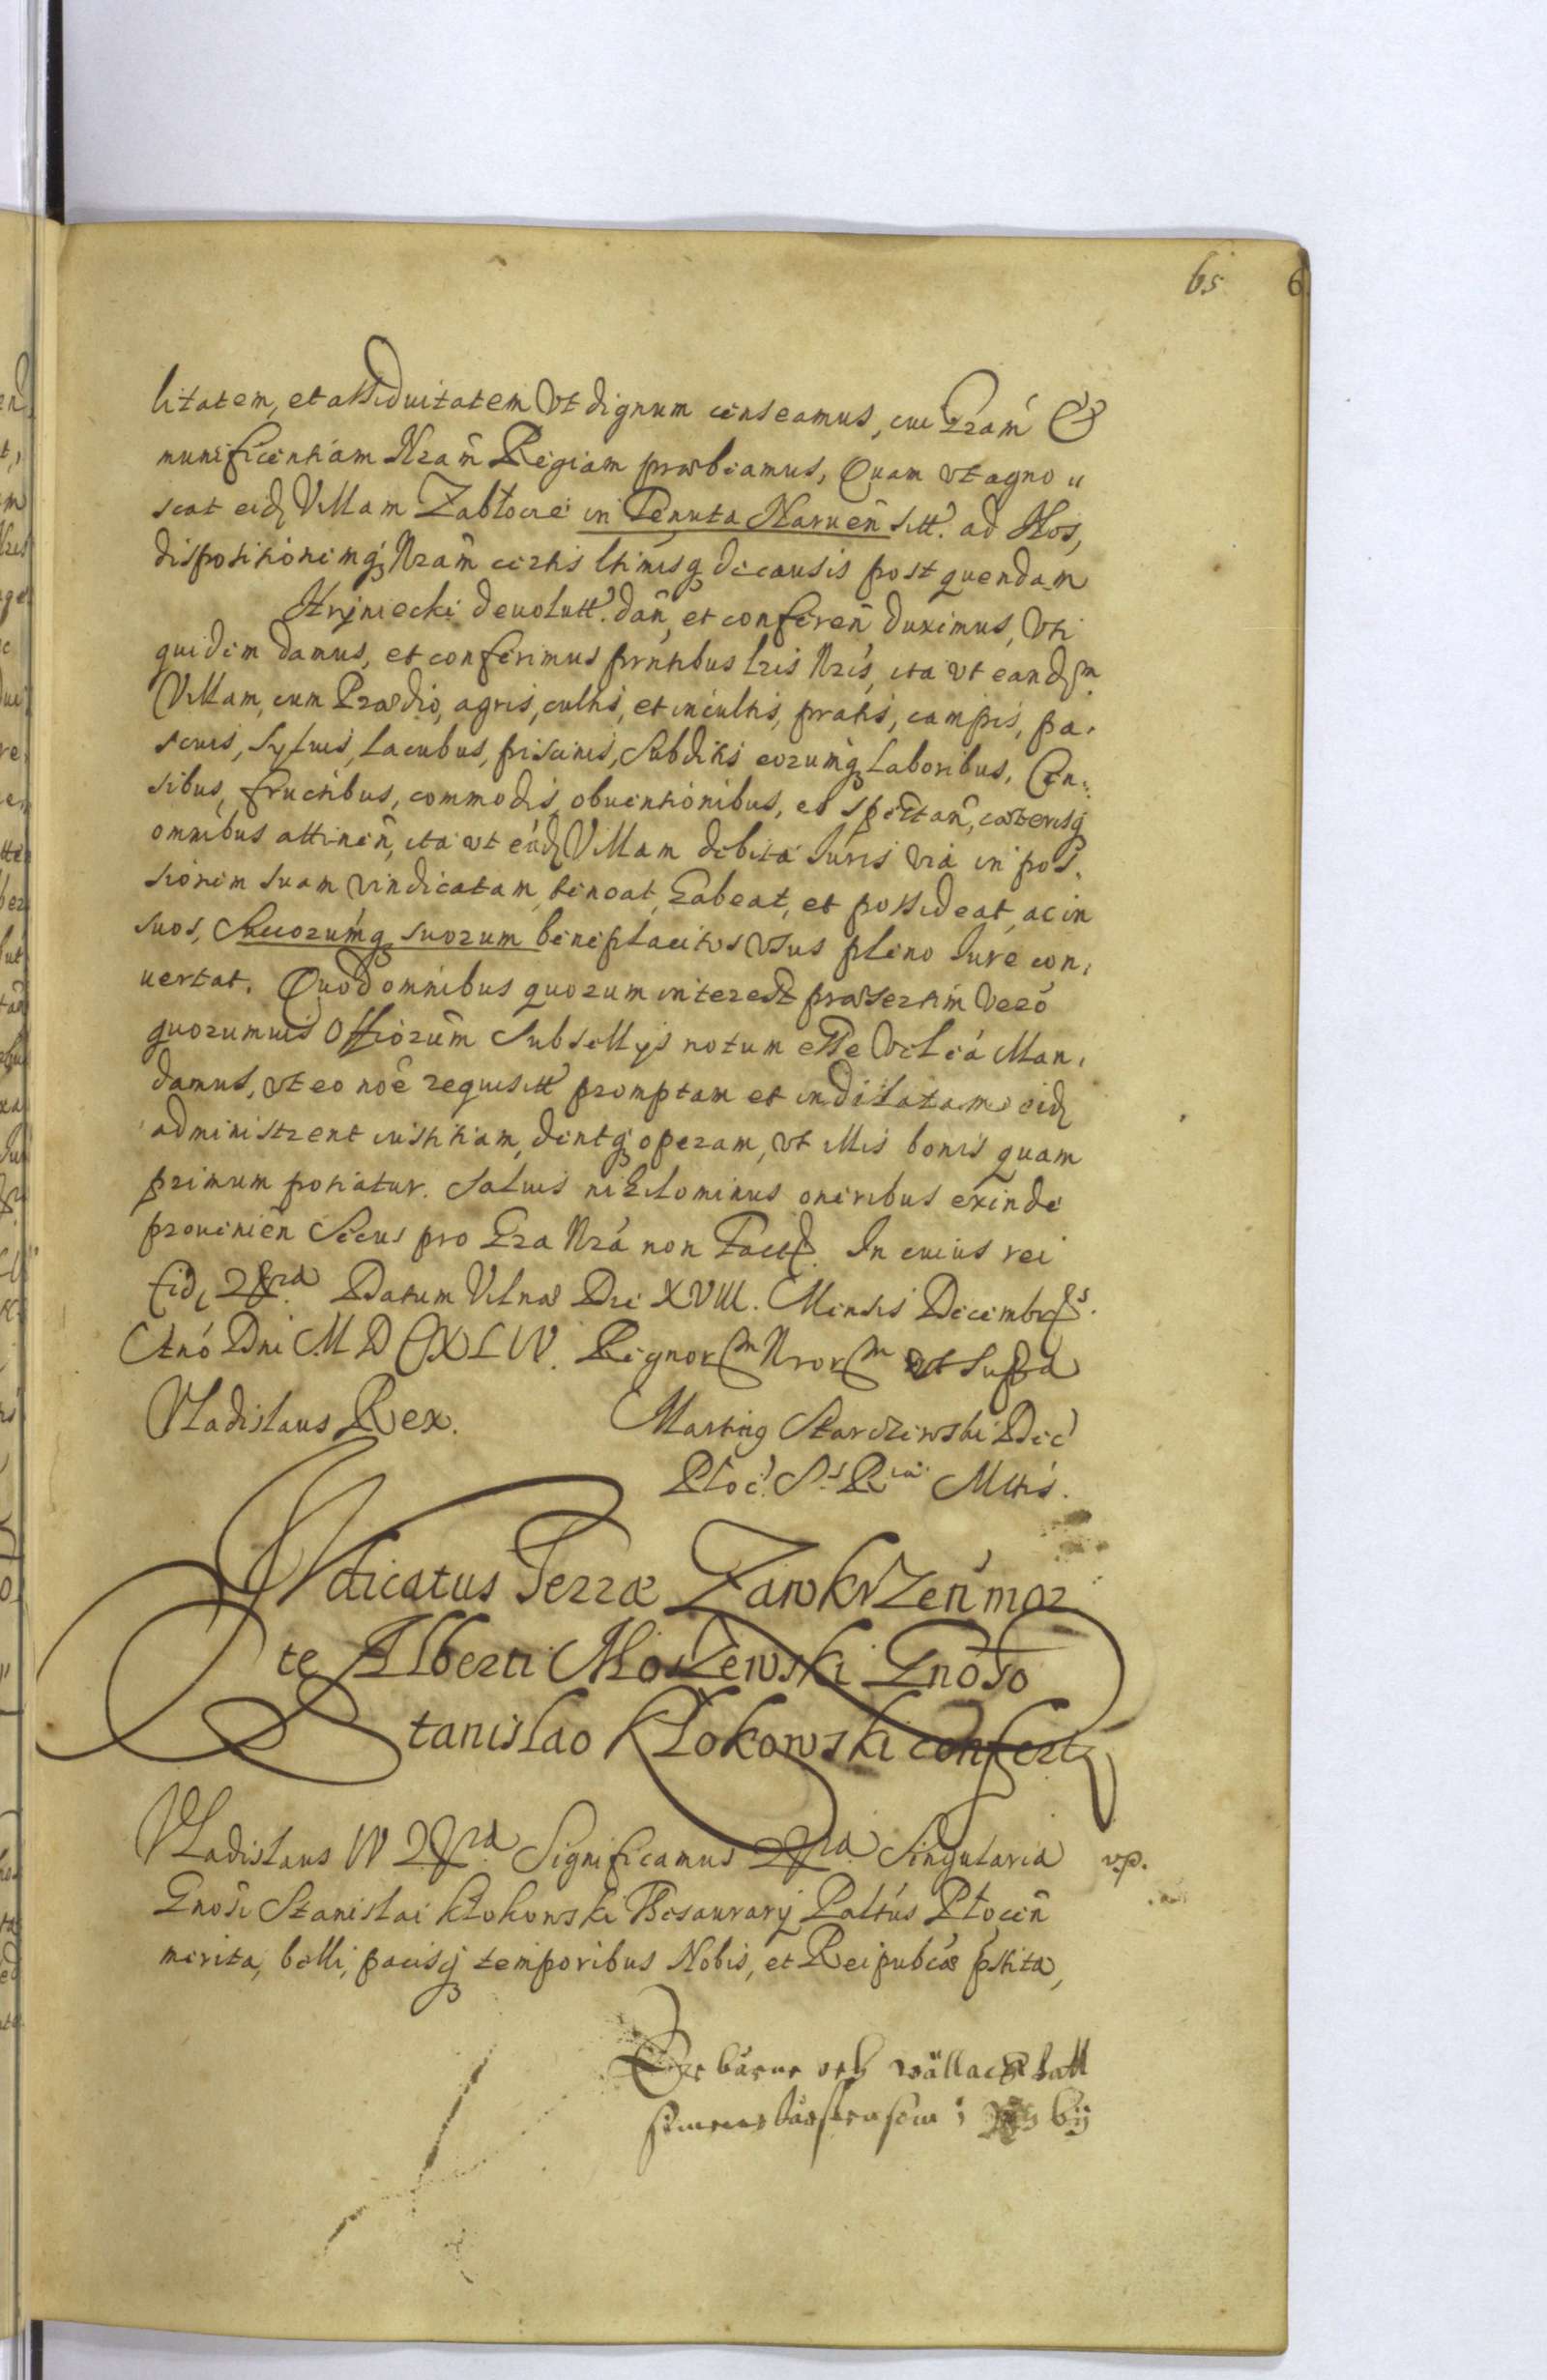 65 6
litatem, et assiduitatem Vt dignum censeamus, cui Gram̃ &
munificentiam Nram̃ Regiam præbeamus, Quam vt agno⸗
scat eidꝫ Villam Zabłocie in Tenuta Naruen̄ sitt. ad Nos,
dispositionemqꝫ Nram̃ certis ltimisqꝫ de causis post quendam
Hryniecki deuolutt. dan̄, et conferen̄ duximus, Vti
quidem damus, et conferimus prntibus Lris Nris, ita vt eandem
Villam, cum Prædio, agris, cultis, et incultis, pratis, campis, pa,
scuis, syluis, lacubus, piscinis, Subditis eorumqꝫ Laboribus, Cen⸗
sibus, fructibus, commodis, obuentionibus, eo spectan̄, cæterisqꝫ
omnibus attinen̄, ita vt eandꝫ Villam debita Iuris via in pos,
sionem suam vindicatam, teneat, habeat, et possideat, ac in
suos, Succorumqꝫ suorum beneplacitos Vsus pleno Iure con,
uertat. Quod omnibus quorum interest præsertim Vero
quorumuis Offiorum̃ Subsellys notum esse Volẽ́ Man,
damus, vt eo noẽ requisitt promptam et indilatam eidꝫ
administrent iustitiam, dentqꝫ operam, vt illis bonis quam
primum potiatur. Saluis nihilominus oneribus exinde
prouenien̄ Secus pro Gra Nrá non Factꝭ. In cuius rei
fidꝫ &ra Datum Vilnæ Die XVIII. Mensis Decembris.
Anó Dni M D CXLIV. Regnorum Nrorum vt supra
Vladislaus Rex. Martinꝰ Starczewski Dec
Płoc. S. Riæ Mttis.
Advocatus Terræ Zawkrzeń mor
te Alberti Moszewski Gnoso
Stanislao Kłokowski confert
Vladislaus IV &ra Significamus &ra Singularia vp.
Gnosi Stanislai Kłokowski Thesaurarij Paltús Płocen̄
merita, belli, pacisqꝫ temporibus Nobis, et Reipubcæ pstita,